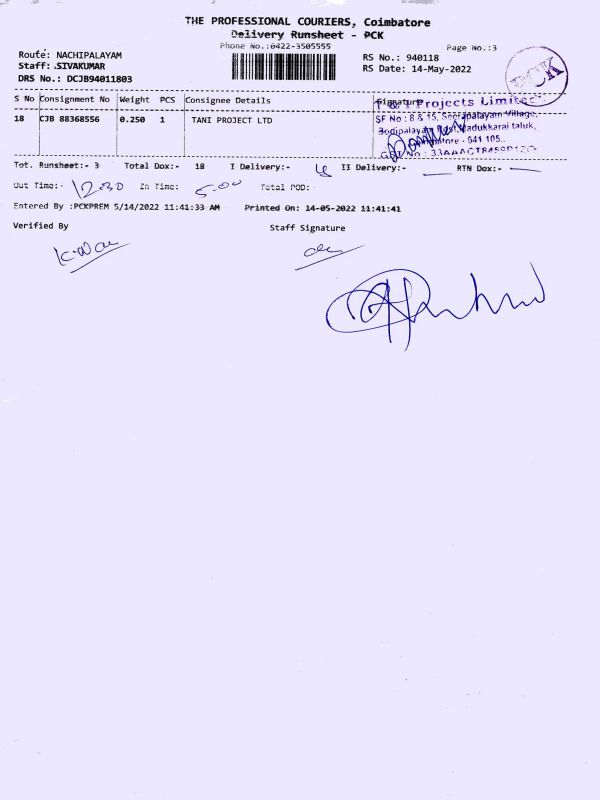 THE PROFESSIONAL COURIERS, Coimbatore
Delivery Runsheet - PCK
Phone No.:0422-3505555
Page No.:3
Route: NACHIPALAYAM
Staff: SIVAKUMAR
DRS No.: DCJB94011803
RS No.: 940118
RS Date: 14-May-2022
PCK
S No Consignment No Weight PCS Consignee Details Signature
18 CJB 88368556 0.250 1 TANI PROJECT LTD
Projects Limited
SF No : 8 & 15, Village,
Madukkarai taluk,
641 105.
Tot. Runsheet:- 3 Total Dox:- 18 I Delivery:- II Delivery:- RTN Dox:-
Out Time:- 12.30 In Time: 5.00 Total POD:
Entered By :PCKPREM 5/14/2022 11:41:33 AM Printed On: 14-05-2022 11:41:41
Verified By Staff Signature